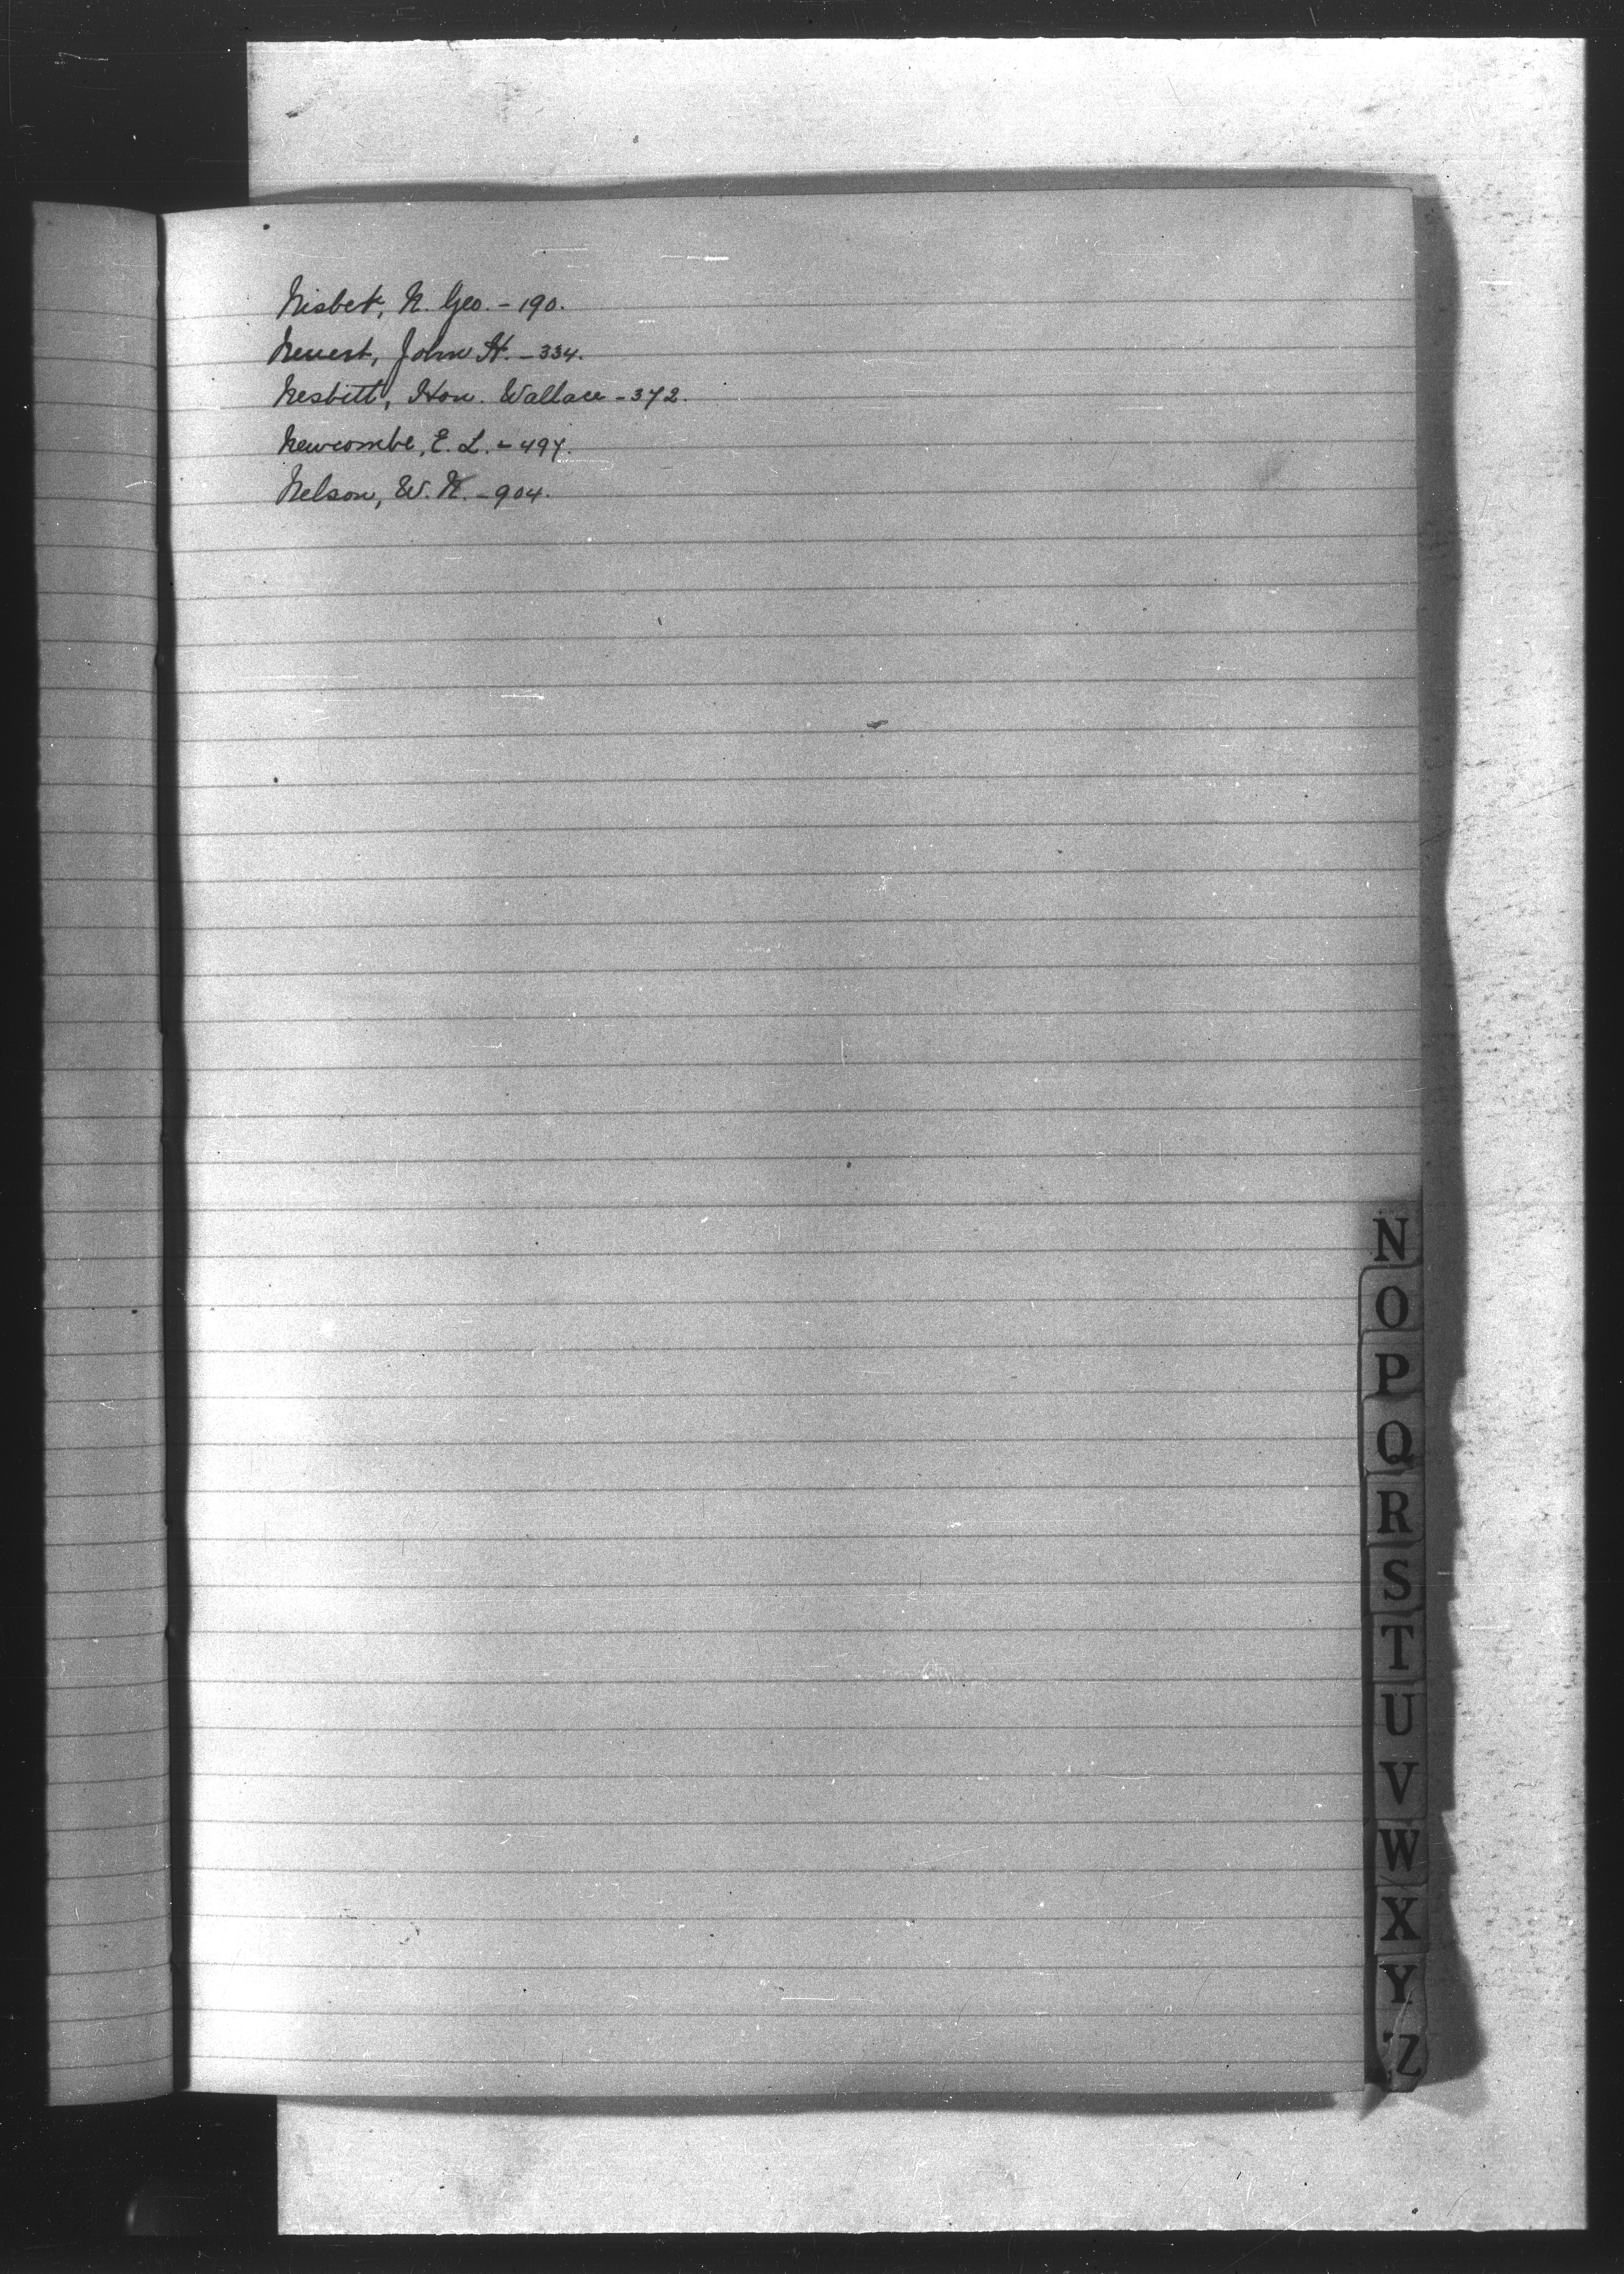 Nisbet, N. Geo. - 190.
John H. - 334.
Nesbitt, Hon. Wallace - 372.
Newcombe, E. L. - 497.
Nelson, W. R. - 904.
N
O
P
Q
R
S
T
U
V
W
X
Y
Z